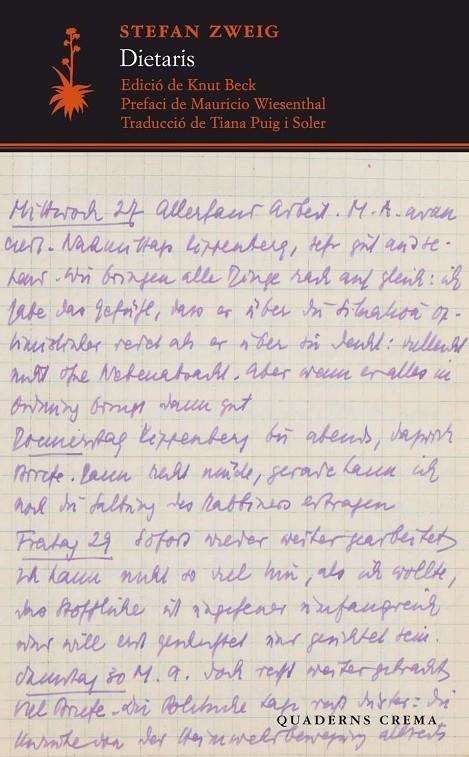 STEFAN ZWEIG
Dietaris
Edició de Knut Beck
Prefaci de Mauricio Wiesenthal
Traducció de Tiana Puig i Soler
Mittwoch 27 Allerhand Arbeit. M. A. avan
ciert. Nachmittags Kippenberg, sehr gut und se-
wir bringen alle Dinge rasch auf gleich: ich
habe das Gefühl, dass er über die Situation op-
timistischer redet als er über sie denkt: vielleicht
nicht ohne Nebenabsicht. Aber wenn er alles in
Ordnung bringt dann gut
Donnerstag Kippenberg bis abends,
Briefe. Dann recht müde, gerade kann ich
noch die des Rabbiners ertragen
Freitag 29 Sofort wieder weitergearbeitet
ich kann nicht so viel hin, als ich wollte,
das Stoffliche ist ungeheuer umfangreich
und will erst und gesichtet sein.
Samstag 30 M. A. doch recht weitergebracht
viel Briefe. Die Politische Lage recht düster: die
von der Heimwehrbewegung
QUADERNS CREMA